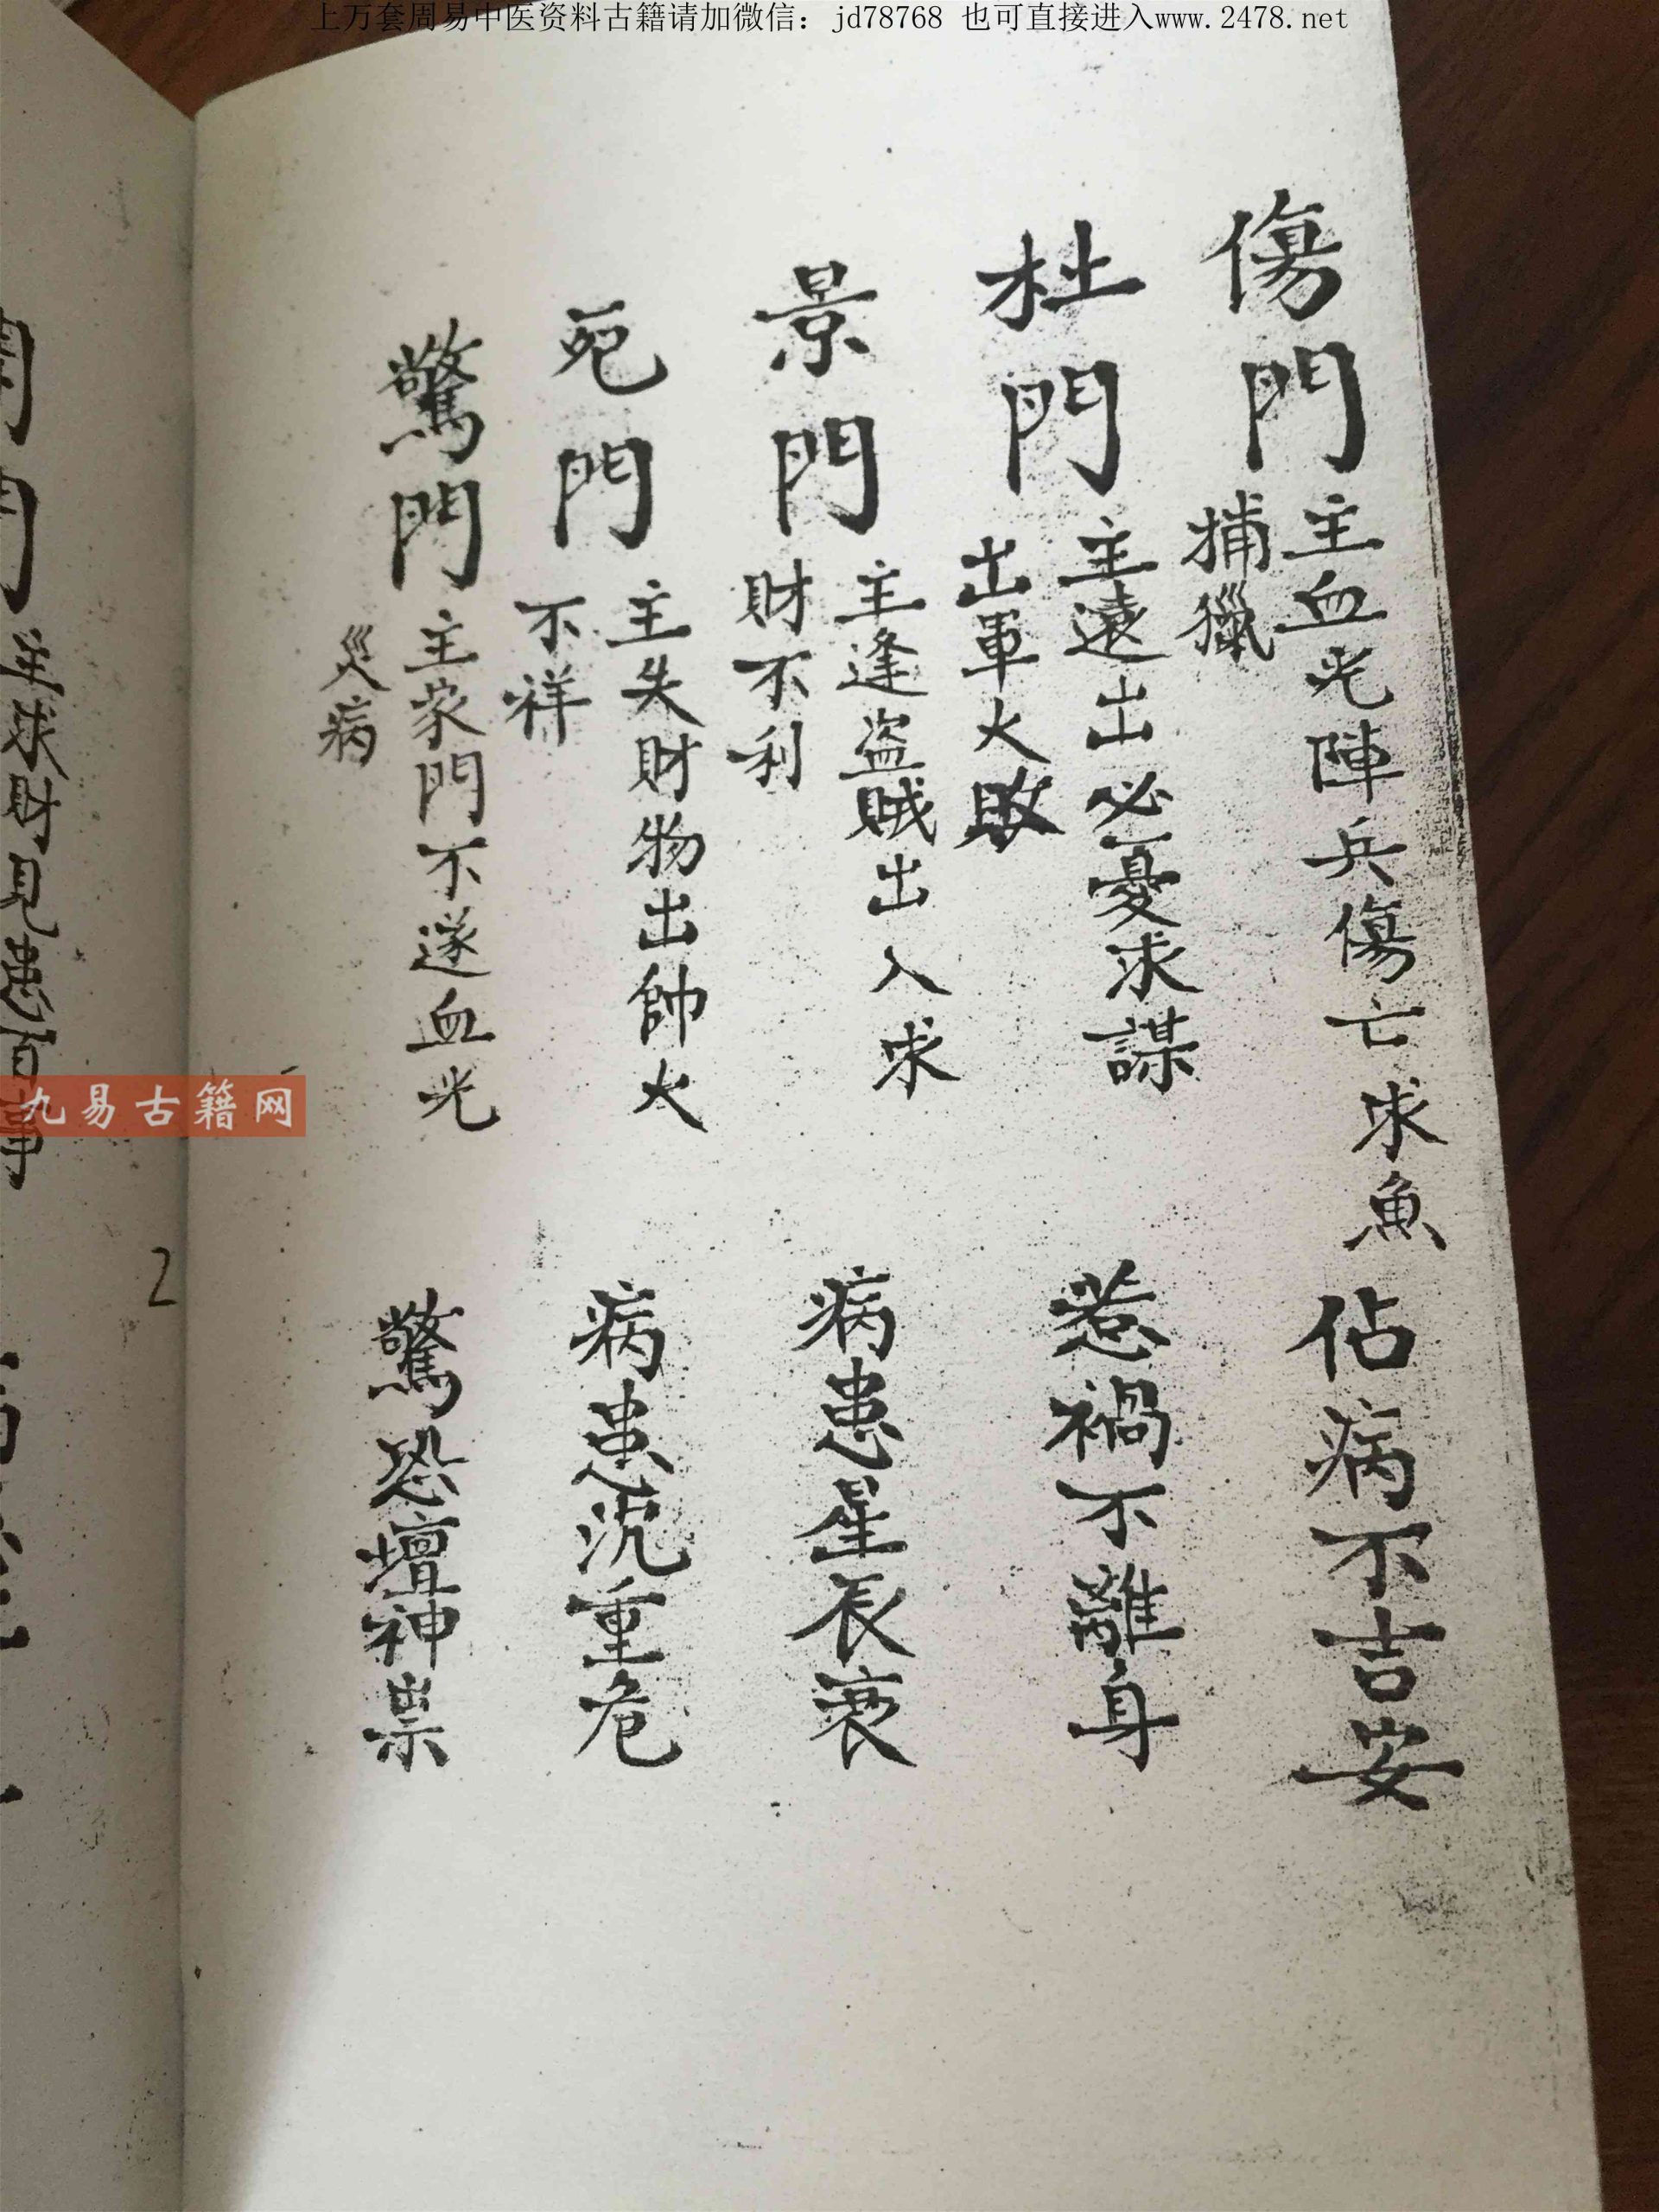 上万套周易中医资料古籍请加微信：jd78768 也可直接进入www.2478.net
傷門
主血光陣兵傷亡求魚
捕獵
佔病不吉安
杜門
主遠出必憂求謀
出軍火敗
惹禍不離身
景門
主逢盗賊出入求
財不利
病患星辰衰
死門
主失財物出帥火
不祥
病患沉重危
驚門
主家門不遂血光
災病
驚恐壇神祟
門主求財見患百事
九易古籍网
2